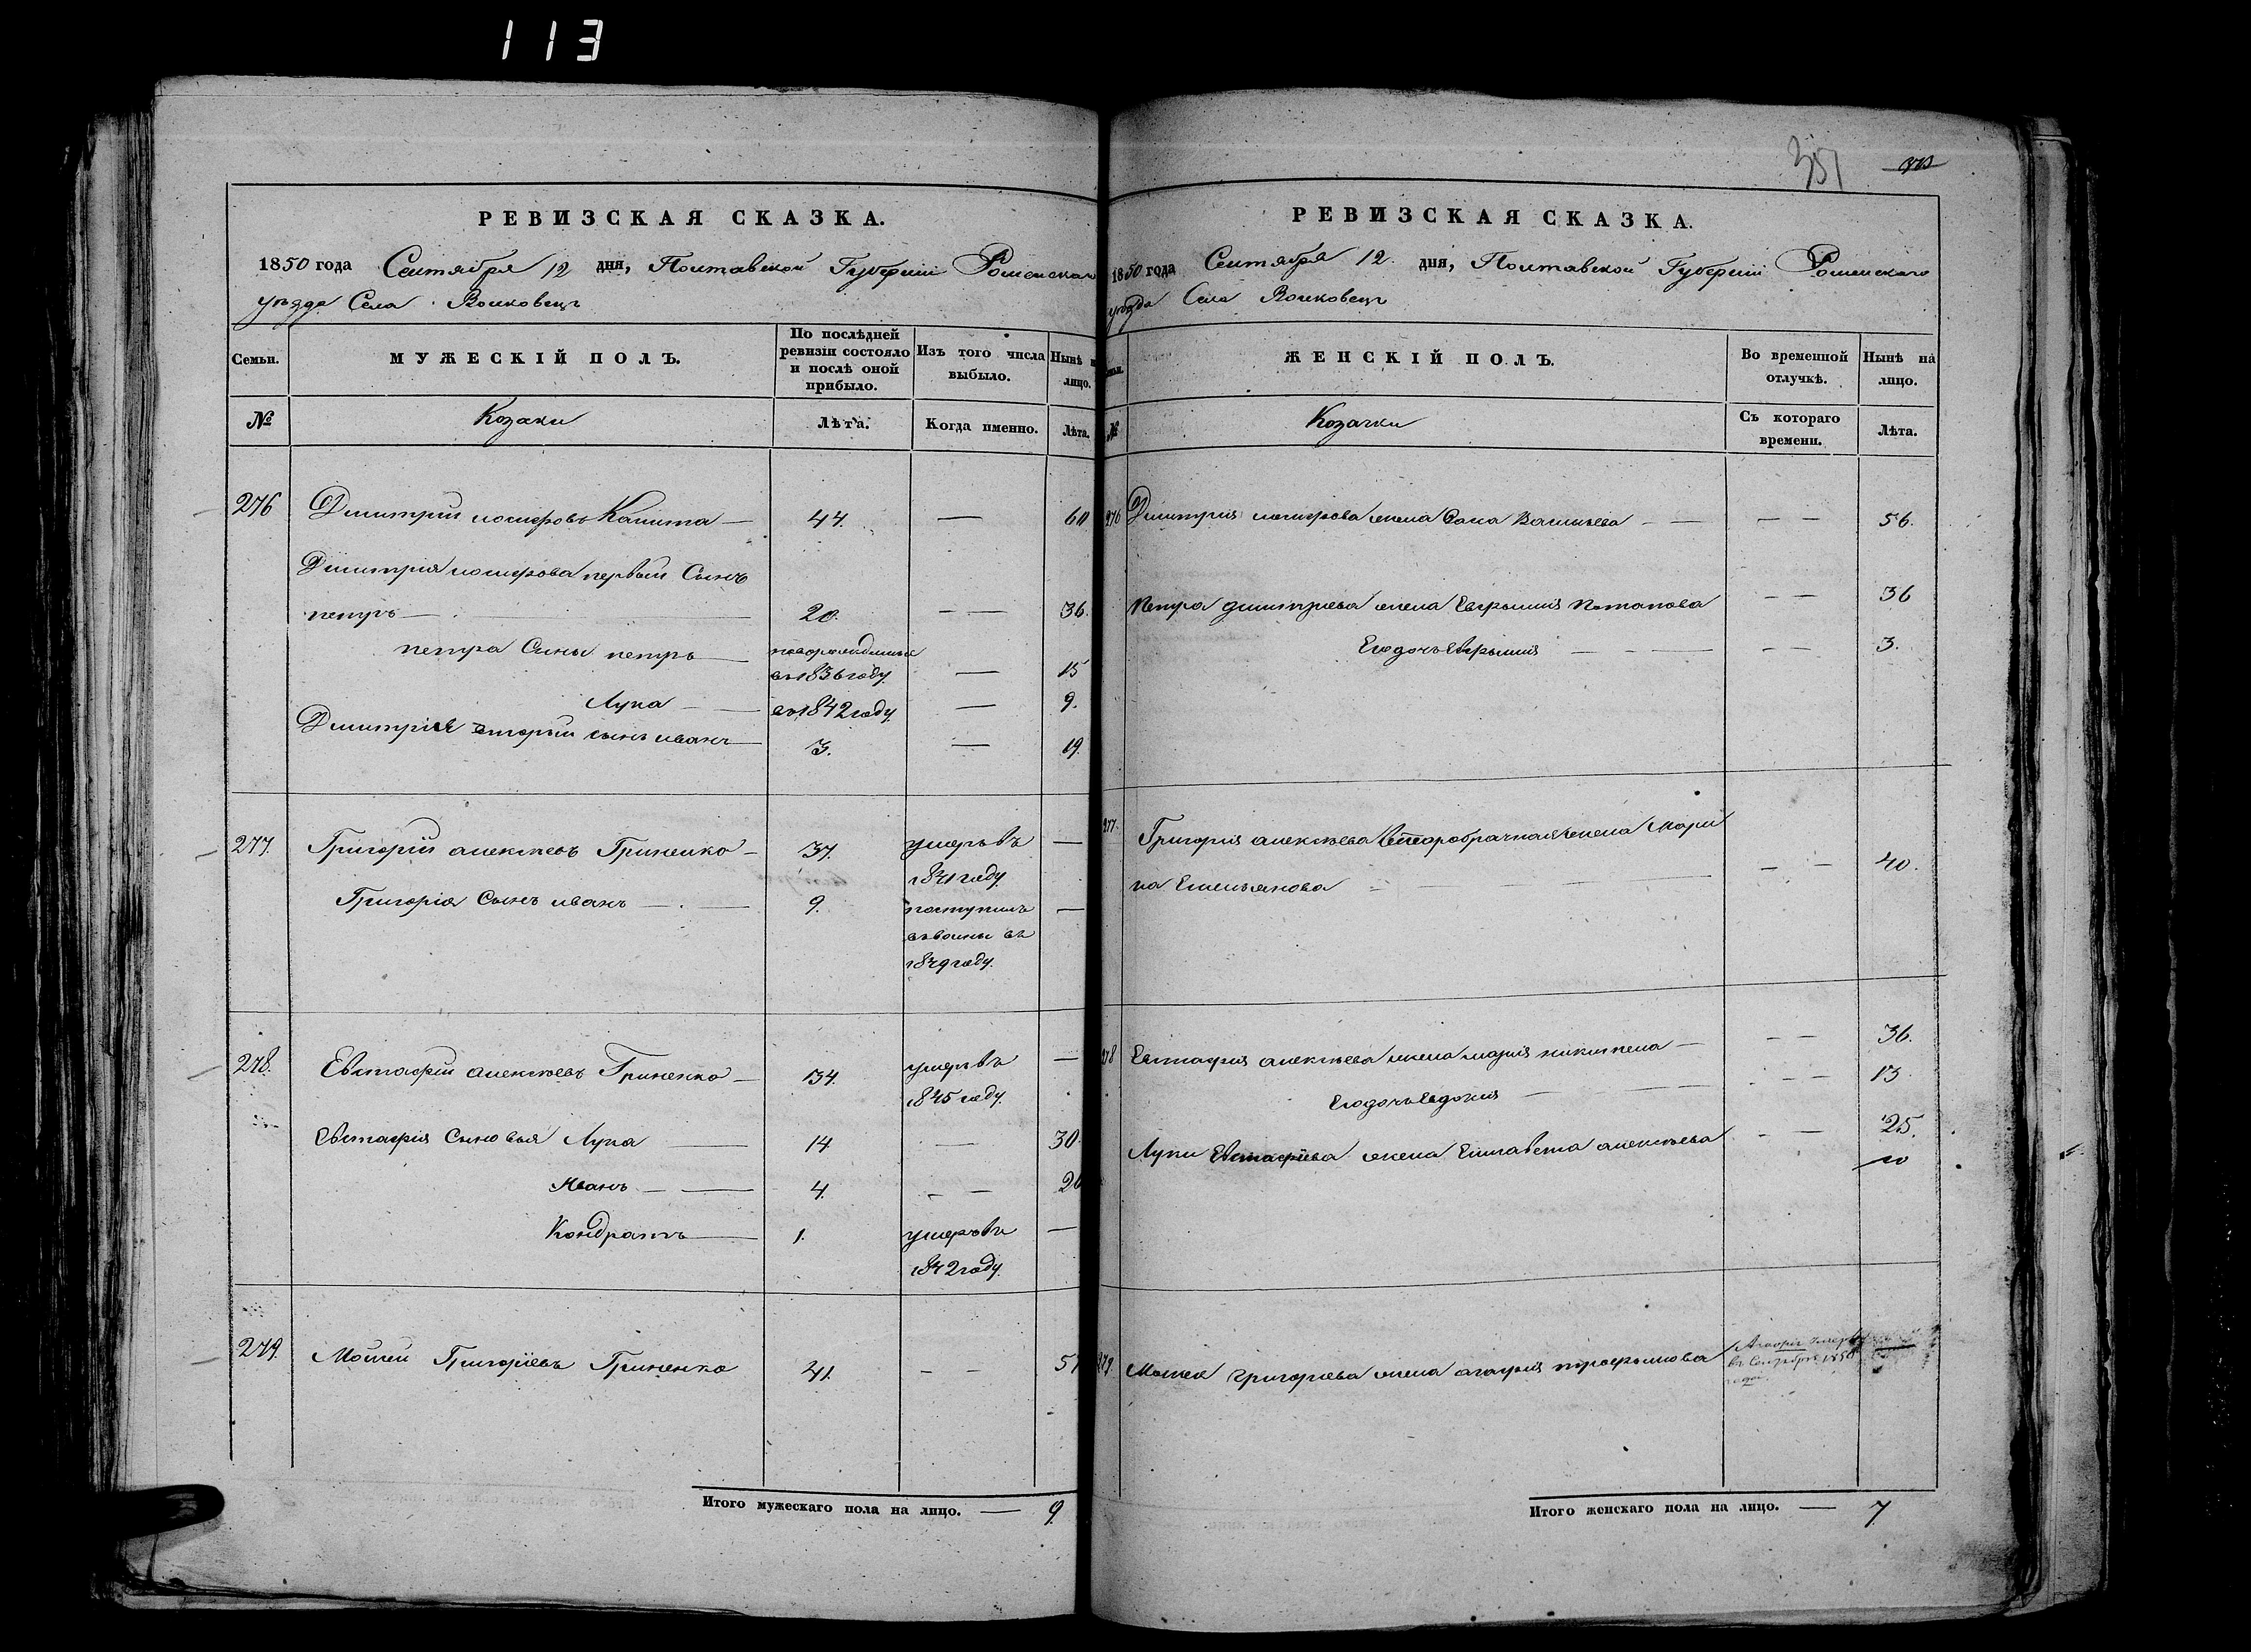 113
РЕВИЗСКАЯ СКАЗКА.
1850 года Сентября 12 дня, Полтавской Губернии Роменскаго
уезда Села Волковецъ
Семьи.
МУЖЕСКІЙ ПОЛЪ.
По послѣдней ревизіи состояло и послѣ оной прибыло.
Изъ того числа выбыло.
Нынѣ на лицо.
№
Козаки
Лѣта.
Когда именно.
Лѣта.
276 Димитрий Калита — 44. — 60
Димитрия первый Сынъ
петръ — 20. — — 36.
петра Сыны петръ — новорожденные
въ 1836 году — 15
Лука — въ 1842 году — 9.
Димитрия вторый сынъ иванъ — 3. — 19.
277. Григорий алексѣевъ Гриненко — 37. умеръ въ —
1841 году
Григорія Сынъ иванъ — 9. поступилъ —
въ 1849 году.
278. Евстафий алексѣевъ Гриненко — 34. умеръ въ —
1845 году
Евстафия Сыновья Лука — 14 — 30.
Иванъ — 4. — — 20
Кондратъ — 1. умеръ въ —
1842 году.
279. Мойсей Григорíевъ Гриненко 41. — — 57
Итого мужескаго пола на лицо. — 9.
351
РЕВИЗСКАЯ СКАЗКА.
1850 года Сентября 12. дня, Полтавской Губернии Роменскаго
уезда Села Волковецъ
ЖЕНСКІЙ ПОЛЪ.
Во временной отлучкѣ.
Нынѣ на лицо.
№
Козачки
Съ котораго времени.
Лѣта.
276 Димитрия жена Васильева — — — 56.
Петра димитриева жена Потапова — — 36
Его дочь — — — 3.
277. Григория алексѣева второбрачная жена Мари
на Емельянова — — — 40.
278 Евстафия алексѣева жена мария никитина — — — 36.
Его дочь Евдокия — — — 13
Луки Евстафиева жена Елисавета алексѣева — — 25.
279. Мойсея григориева жена агафия трофимова
въ Сентябрѣ 1850
Итого женскаго пола на лицо. — 7.